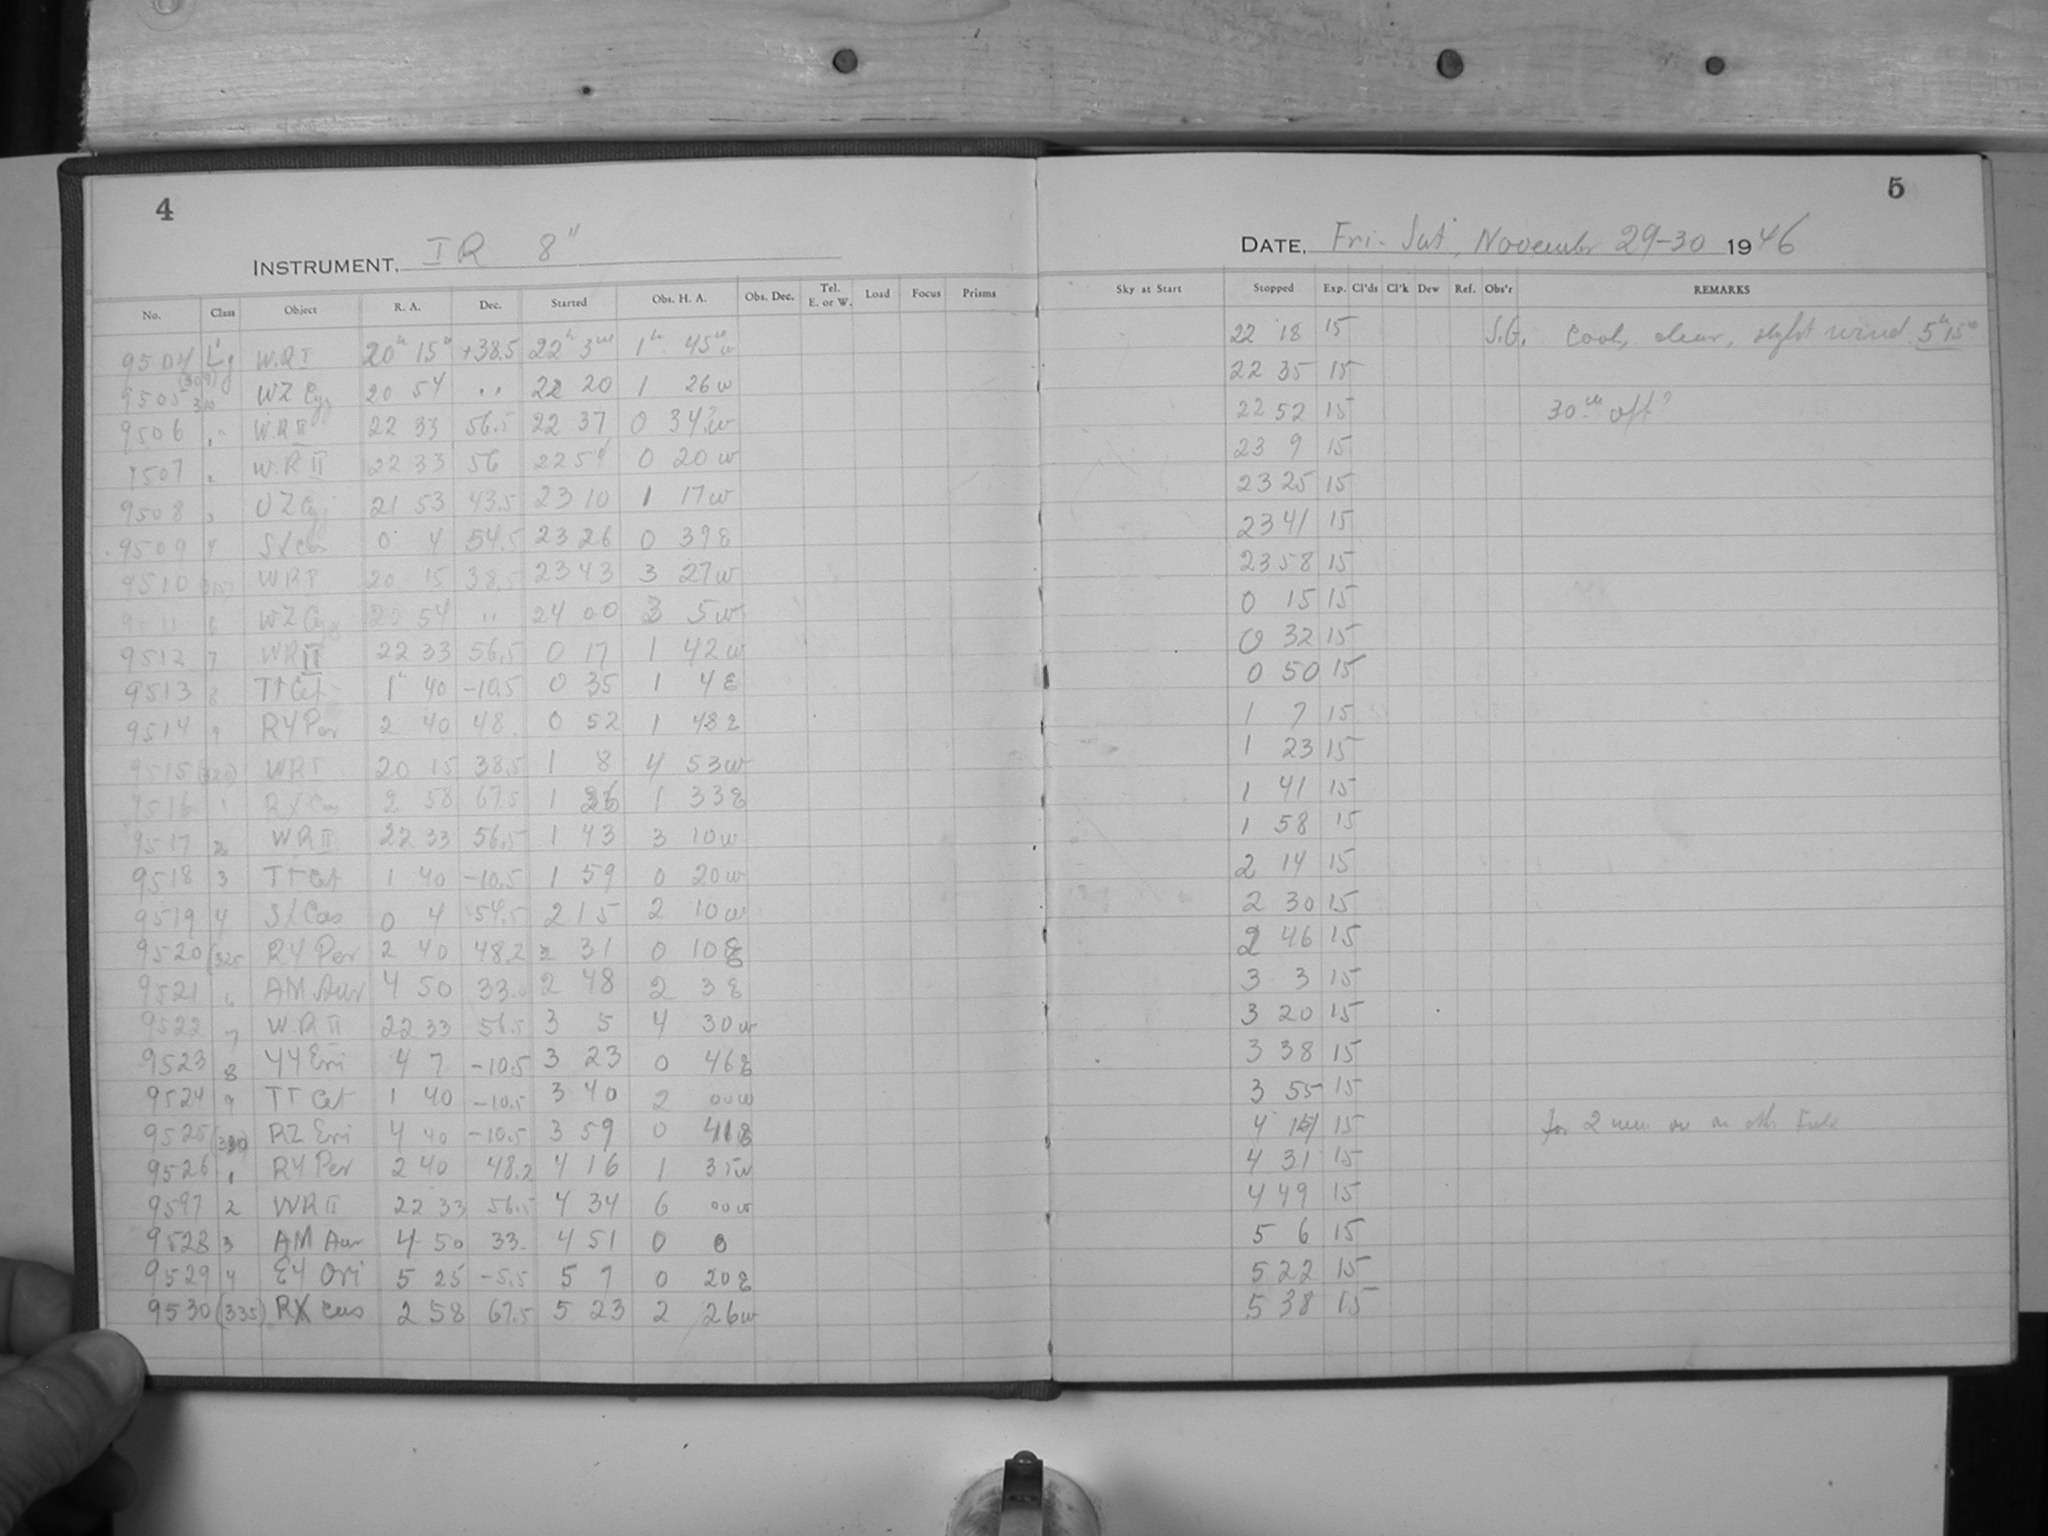 4
INSTRUMENT, IR 8"
No. Class Object R. A. Dec. Started Obs. H. A. Obs. Dec. Tel. E. or W. Load Focus Prisms
9504 W.R I 20h 15m +38.5 22h 3m 1h 45m w
9505 310 WZ Cyg 20 54 " 22 20 1 26 w
9506 " W.R II 22 33 56.5 22 37 0 34? w
9507 W.R II 22 33 56 22 54 0 20 w
9508 UZ Cyg 21 53 43.5 23 10 1 17 w
9509 SX Cas 0 4 54.5 23 26 0 39 E
9510 (315) WR I 20 15 38.5 23 43 3 27 w
WZ Cyg 20 54 " 24 00 3 5 w
9512 7 WR II 22 33 56.5 0 17 1 42 w
9513 8 TT Cet 1h 40 -10.5 0 35 1 4 E
9514 9 RY Per 2 40 48. 0 52 1 48 E
9515 (320) WR I 20 15 38.5 1 8 4 53 w
9516 1 RX Cas 2 58 67.5 1 26 1 33 E
9517 2 WR II 22 33 56.5 1 43 3 10 w
9518 3 TT Cet 1 40 -10.5 1 59 0 20 w
9519 4 SX Cas 0 4 54.5 2 15 2 10 w
9520 (325 RY Per 2 40 48.2 2 31 0 10 E
9521 6 AM Aur 4 50 33.0 2 48 2 3 E
9522 7 W.R II 22 33 56.5 3 5 4 30 w
9523 8 YY Eri 4 7 -10.5 3 23 0 46 E
9524 9 TT Cet 1 40 -10.5 3 40 2 00 w
9525 (330) RZ Eri 4 40 -10.5 3 59 0 41 E
9526 1 RY Per 2 40 48.2 4 16 1 35 w
9597 2 WR II 22 33 56.5 4 34 6 00 w
9528 3 AM Aur 4 50 33. 4 51 0 0
9529 4 EY Ori 5 25 -5.5 5 7 0 20 E
9530 (335) RX Cas 2 58 67.5 5 23 2 26 w
5
DATE, Fri-Sat, November 29-30 1946
Sky at Start Stopped Exp. Cl'ds Cl'k Dew Ref. Obs'r REMARKS
22 18 15 S.G. Cool, clear, slight wind 5h 15m
22 35 15
22 52 15 30m off?
23 9 15
23 25 15
23 41 15
23 58 15
0 15 15
0 32 15
0 50 15
1 7 15
1 23 15
1 41 15
1 58 15
2 14 15
2 30 15
2 46 15
3 3 15
3 20 15
3 38 15
3 55 15
4 14 15 for 2 min on
4 31 15
4 49 15
5 6 15
5 22 15
5 38 15